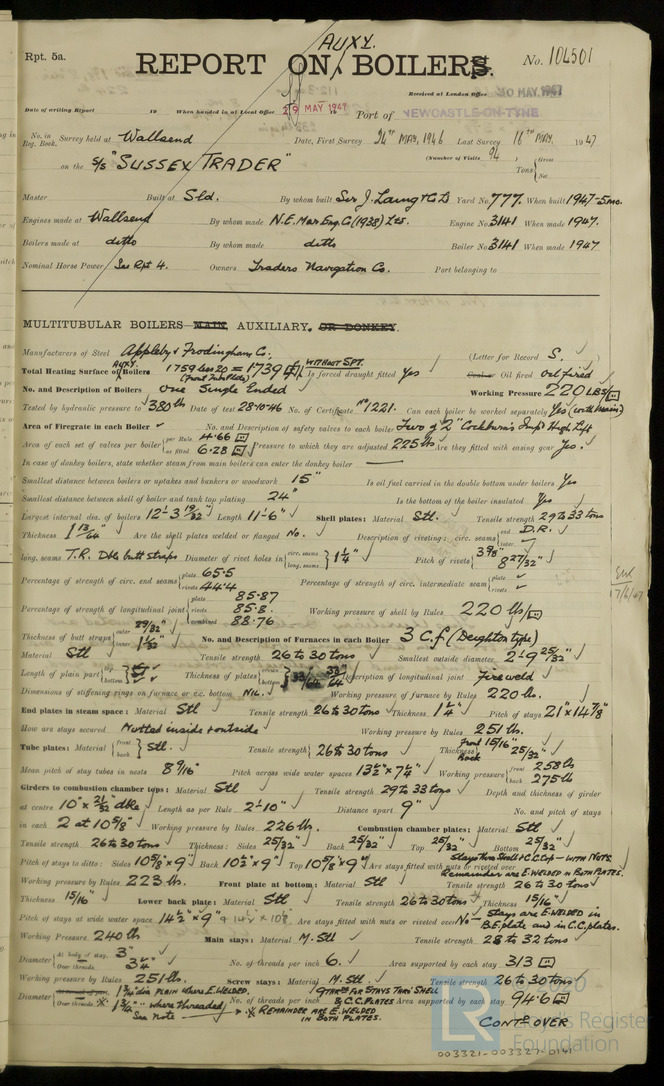 Rpt. 5a.
AUXY.
REPORT ON BOILERS.
No. 104501
Received at London Office 30 MAY 1947
Date of writing Report 19 When handed in at Local Office 29 MAY 1947 Port of NEWCASTLE-ON-TYNE
No. in Reg. Book. Survey held at Wallsend Date, First Survey 24th MAY, 1946 Last Survey 16th MAY. 1947
on the S/S "SUSSEX TRADER" (Number of Visits 94) Tons Gross Net
Master Built at Sld. By whom built Sir J. Laing & Co Ld Yard No. 777. When built 1947-5mo.
Engines made at Wallsend By whom made N.E. Mar Eng. Co (1938) Ltd. Engine No. 3141 When made 1947.
Boilers made at ditto By whom made ditto Boiler No. 3141 When made 1947
Nominal Horse Power See Rpt 4. Owners Traders Navigation Co. Port belonging to
MULTITUBULAR BOILERS MAIN, AUXILIARY, OR DONKEY.
Manufacturers of Steel Appleby & Frodingham Co. (Letter for Record S.)
Total Heating Surface of AUXY. Boilers 1759 less 20 = 1739 WITHOUT SPT. Is forced draught fitted Yes Coal or Oil fired Oil fired
(Front Tube Plate)
No. and Description of Boilers One Single Ended Working Pressure 220 LBS/□
Tested by hydraulic pressure to 380 lbs Date of test 28-10-46 No. of Certificate No 1221. Can each boiler be worked separately Yes (with Mains)
Area of Firegrate in each Boiler ✓ No. and Description of safety valves to each boiler Two of 2" Cockburn's Imp'd High Lift
Area of each set of valves per boiler per Rule 4.66 □" as fitted 6.28 □" Pressure to which they are adjusted 225 lbs Are they fitted with easing gear Yes.
In case of donkey boilers, state whether steam from main boilers can enter the donkey boiler —
Smallest distance between boilers or uptakes and bunkers or woodwork 15" Is oil fuel carried in the double bottom under boilers Yes
Smallest distance between shell of boiler and tank top plating 24" Is the bottom of the boiler insulated Yes
Largest internal dia. of boilers 12'-3 19/32" Length 11'-6" Shell plates: Material Stl. Tensile strength 29 to 33 tons
Thickness 1 13/64" Are the shell plates welded or flanged No. Description of riveting: circ. seams end D.R. inter. ✓
long. seams T.R. Dble butt straps Diameter of rivet holes in circ. seams long. seams 1 1/4" Pitch of rivets 3.98" 8 27/32"
Percentage of strength of circ. end seams plate 65.5 rivets 44.4 Percentage of strength of circ. intermediate seam plate ✓ rivets ✓
Percentage of strength of longitudinal joint plate 85.87 rivets 85.8. combined 88.76 Working pressure of shell by Rules 220 lbs/□"
Thickness of butt straps outer 29/32" inner 1 1/32" No. and Description of Furnaces in each Boiler 3 C.f. (Deighton type)
Material Stl Tensile strength 26 to 30 tons Smallest outside diameter 2'-9 25/32"
Length of plain part top bottom Thickness of plates crown bottom 33/64 Description of longitudinal joint Fire weld
Dimensions of stiffening rings on furnace or c.c. bottom NIL. Working pressure of furnace by Rules 220 lbs.
End plates in steam space: Material Stl Tensile strength 26 to 30 tons Thickness 1 1/4" Pitch of stays 21" x 14 7/8"
How are stays secured Nutted inside & outside Working pressure by Rules 251 lbs.
Tube plates: Material front back Stl. Tensile strength 26 to 30 tons Thickness Front 15/16" Back 25/32"
Mean pitch of stay tubes in nests 8 9/16" Pitch across wide water spaces 13 1/2" x 7 1/4" Working pressure front 258 lbs back 275 lbs
Girders to combustion chamber tops: Material Stl Tensile strength 29 to 33 tons Depth and thickness of girder
at centre 10" x 21/32" dble Length as per Rule 2'-10" Distance apart 9" No. and pitch of stays
in each 2 at 10 5/8" Working pressure by Rules 226 lbs. Combustion chamber plates: Material Stl
Tensile strength 26 to 30 tons Thickness: Sides 25/32" Back 25/32" Top 25/32" Bottom 25/32"
Pitch of stays to ditto: Sides 10 5/8" x 9" Back 10 1/2" x 9" Top 10 5/8" x 9" Are stays fitted with nuts or riveted over Stays thro Shell & C.C. Top — WITH NUTS. Remainder are E.WELDED in BOTH PLATES.
Working pressure by Rules 223 lbs. Front plate at bottom: Material Stl Tensile strength 26 to 30 tons
Thickness 15/16" Lower back plate: Material Stl Tensile strength 26 to 30 tons Thickness 15/16"
Pitch of stays at wide water space 14 1/2" x 9" Are stays fitted with nuts or riveted over No — Stays are E.WELDED in B.E. plate and in C.C. plates.
Working Pressure 240 lbs Main stays: Material M. Stl Tensile strength 28 to 32 tons
Diameter At body of stay, 3" Over threads 3 1/4" No. of threads per inch 6. Area supported by each stay 313 □"
Working pressure by Rules 251 lbs. Screw stays: Material M. Stl. Tensile strength 26 to 30 tons
Diameter 1 3/4" dia PLAIN where E.WELDED. Over threads 1 3/4" where threaded. See note No. of threads per inch 9 THRDS FOR STAYS THRO' SHELL & C.C. PLATES Area supported by each stay 94.6 □"
※ REMAINDER ARE E.WELDED IN BOTH PLATES.
CONTD OVER
17/6/47
LR
Lloyd's Register
Foundation
003321-003327-0141